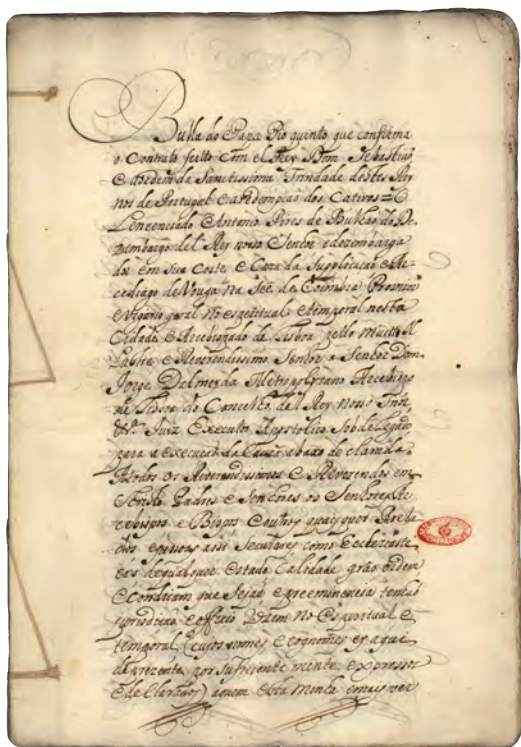 Bulla do Papa Pio quinto, que confirma
o Contrato feito com el Rey Dom Sebastiaõ
e a ordem da Sanctissima Trindade destes Rey
nos de Portugal e a Redempçaõ dos Cativos = O
Lencenciado Antonio Pires de Bulhaõ do De
zembargo del Rey nosso Senhor e dezembarga
dor em sua Corte e Caza da Supplicaçaõ e Ar
cediago de Vouga na See de Coimbra Provizor
e Vigario geral no espiritual e temporal nesta
Cidade e Arcebispado de Lisboa pello muitto Il
lustre e Reverendissimo Senhor o Senhor Dom
Jorge Dalmeyda Metropolytano Arcebispo
de Lisboa do Concelho del Rey nosso Snõr
Juiz Executor Apostolico Sob delegado
para a execuçaõ da Cauza abaxo declarada
A todos os Reverendissimos e Reverendos em
Christo Padres e Senhores os Senhores Ar
cebispos e Bispos e outros quaisquer Prela
dos e pessoas assi Seculares como Ecclezeasti
cas de qualquer estado Calidade grao ordem
e condiçam que sejaõ e preeminencia tenhaõ
jurisdiçaõ e officio uzem no espiritual e
temporal (cujos nomes e cognomes ey aqui
de prezente por sufficiente mente expressos
e declarados) aquem esta minha e mais ver